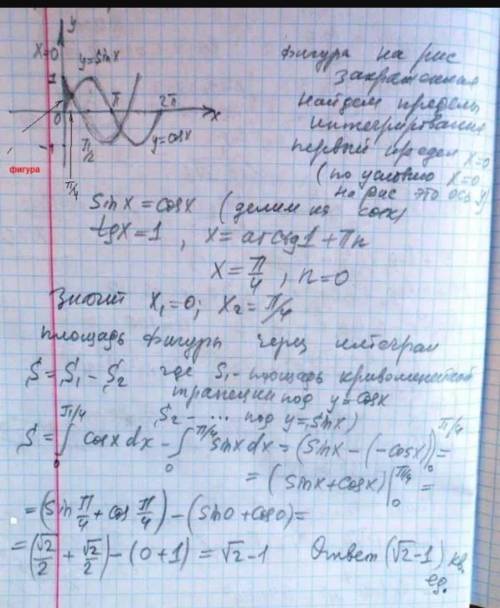 y
X=0
y=sinx
1
0
π
2π
x
-1
π/2
y=cosx
фигура
π/4
фигура на рис
закрашенная
найдем пределы
интегрирования
первый предел x=0
(по условию x=0
на рис это ось y)
sinx = cosx (делим на cosx)
tgx=1, x=arctg1+πn
x=π/4, n=0
Значит x₁=0; x₂=π/4
площадь фигуры через интеграл
S=S₁-S₂ где S₁-площадь криволинейной
трапеции под y=cosx
S₂-... под y=sinx)
S=∫₀^(π/4) cosxdx-∫₀^(π/4) sinxdx=(sinx-(-cosx))|₀^(π/4)=
=(sinx+cosx)|₀^(π/4)=
=(sin π/4+cos π/4)-(sin0+cos0)=
=(√2/2+√2/2)-(0+1)=√2-1 Ответ (√2-1) кв.
ед.